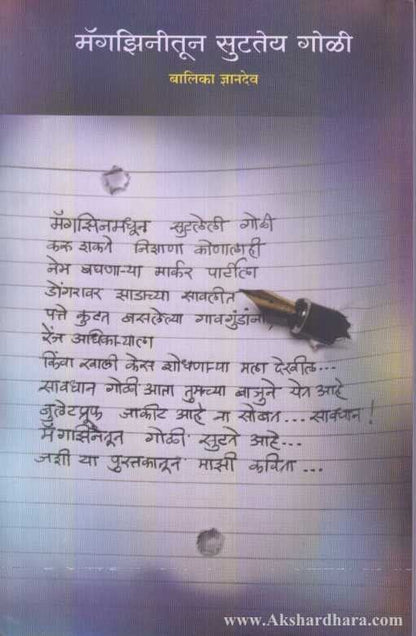 मॅगझिनीतून सुटतेय गोळी
बालिका ज्ञानदेव
मॅगझिनमधून सुटलेली गोळी
करू शकते निशाणा कोणालाही
नेम बघणाऱ्या मार्कर पार्टीला
डोंगरावर झाडाच्या सावलीत
पत्ते कुटत बसलेल्या गावगुंडांना,
रेंज अधिकाऱ्याला
किंवा खाली केस शोधणाऱ्या मला देखील...
सावधान गोळी आता तुमच्या बाजुने येत आहे
बुलेटप्रूफ जाकीट आहे ना सोबत... सावधान!
मॅगझिनीतून गोळी सुटते आहे...
जशी या पुस्तकातून माझी कविता...
www.Akshardhara.com